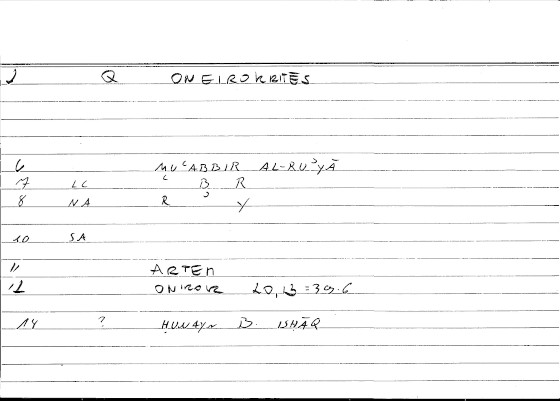 J Q ONEIROKRITĒS
6 MUʿABBIR AL-RUʾYĀ
7 LC ʿ B R
8 NA R ʾ Y
10 SA
11 ARTEM
12 ONIROKR 20,13 =
14 ? ḤUNAYN B. ISḤĀQ